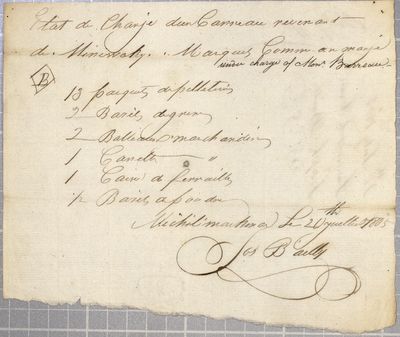 Etat de Charge d'un Canneau revenant
de Minewaky. Marques Comm en marge
under charge of Monr.
B
13 paquets de pelletries
2 Barils de grus
2 Ballots marchandises
1 Canette "
1 Caisse de ferraille
1/2 Baril a poudre
Michilimackinac le 26th juillet 1805
Jos Bailly